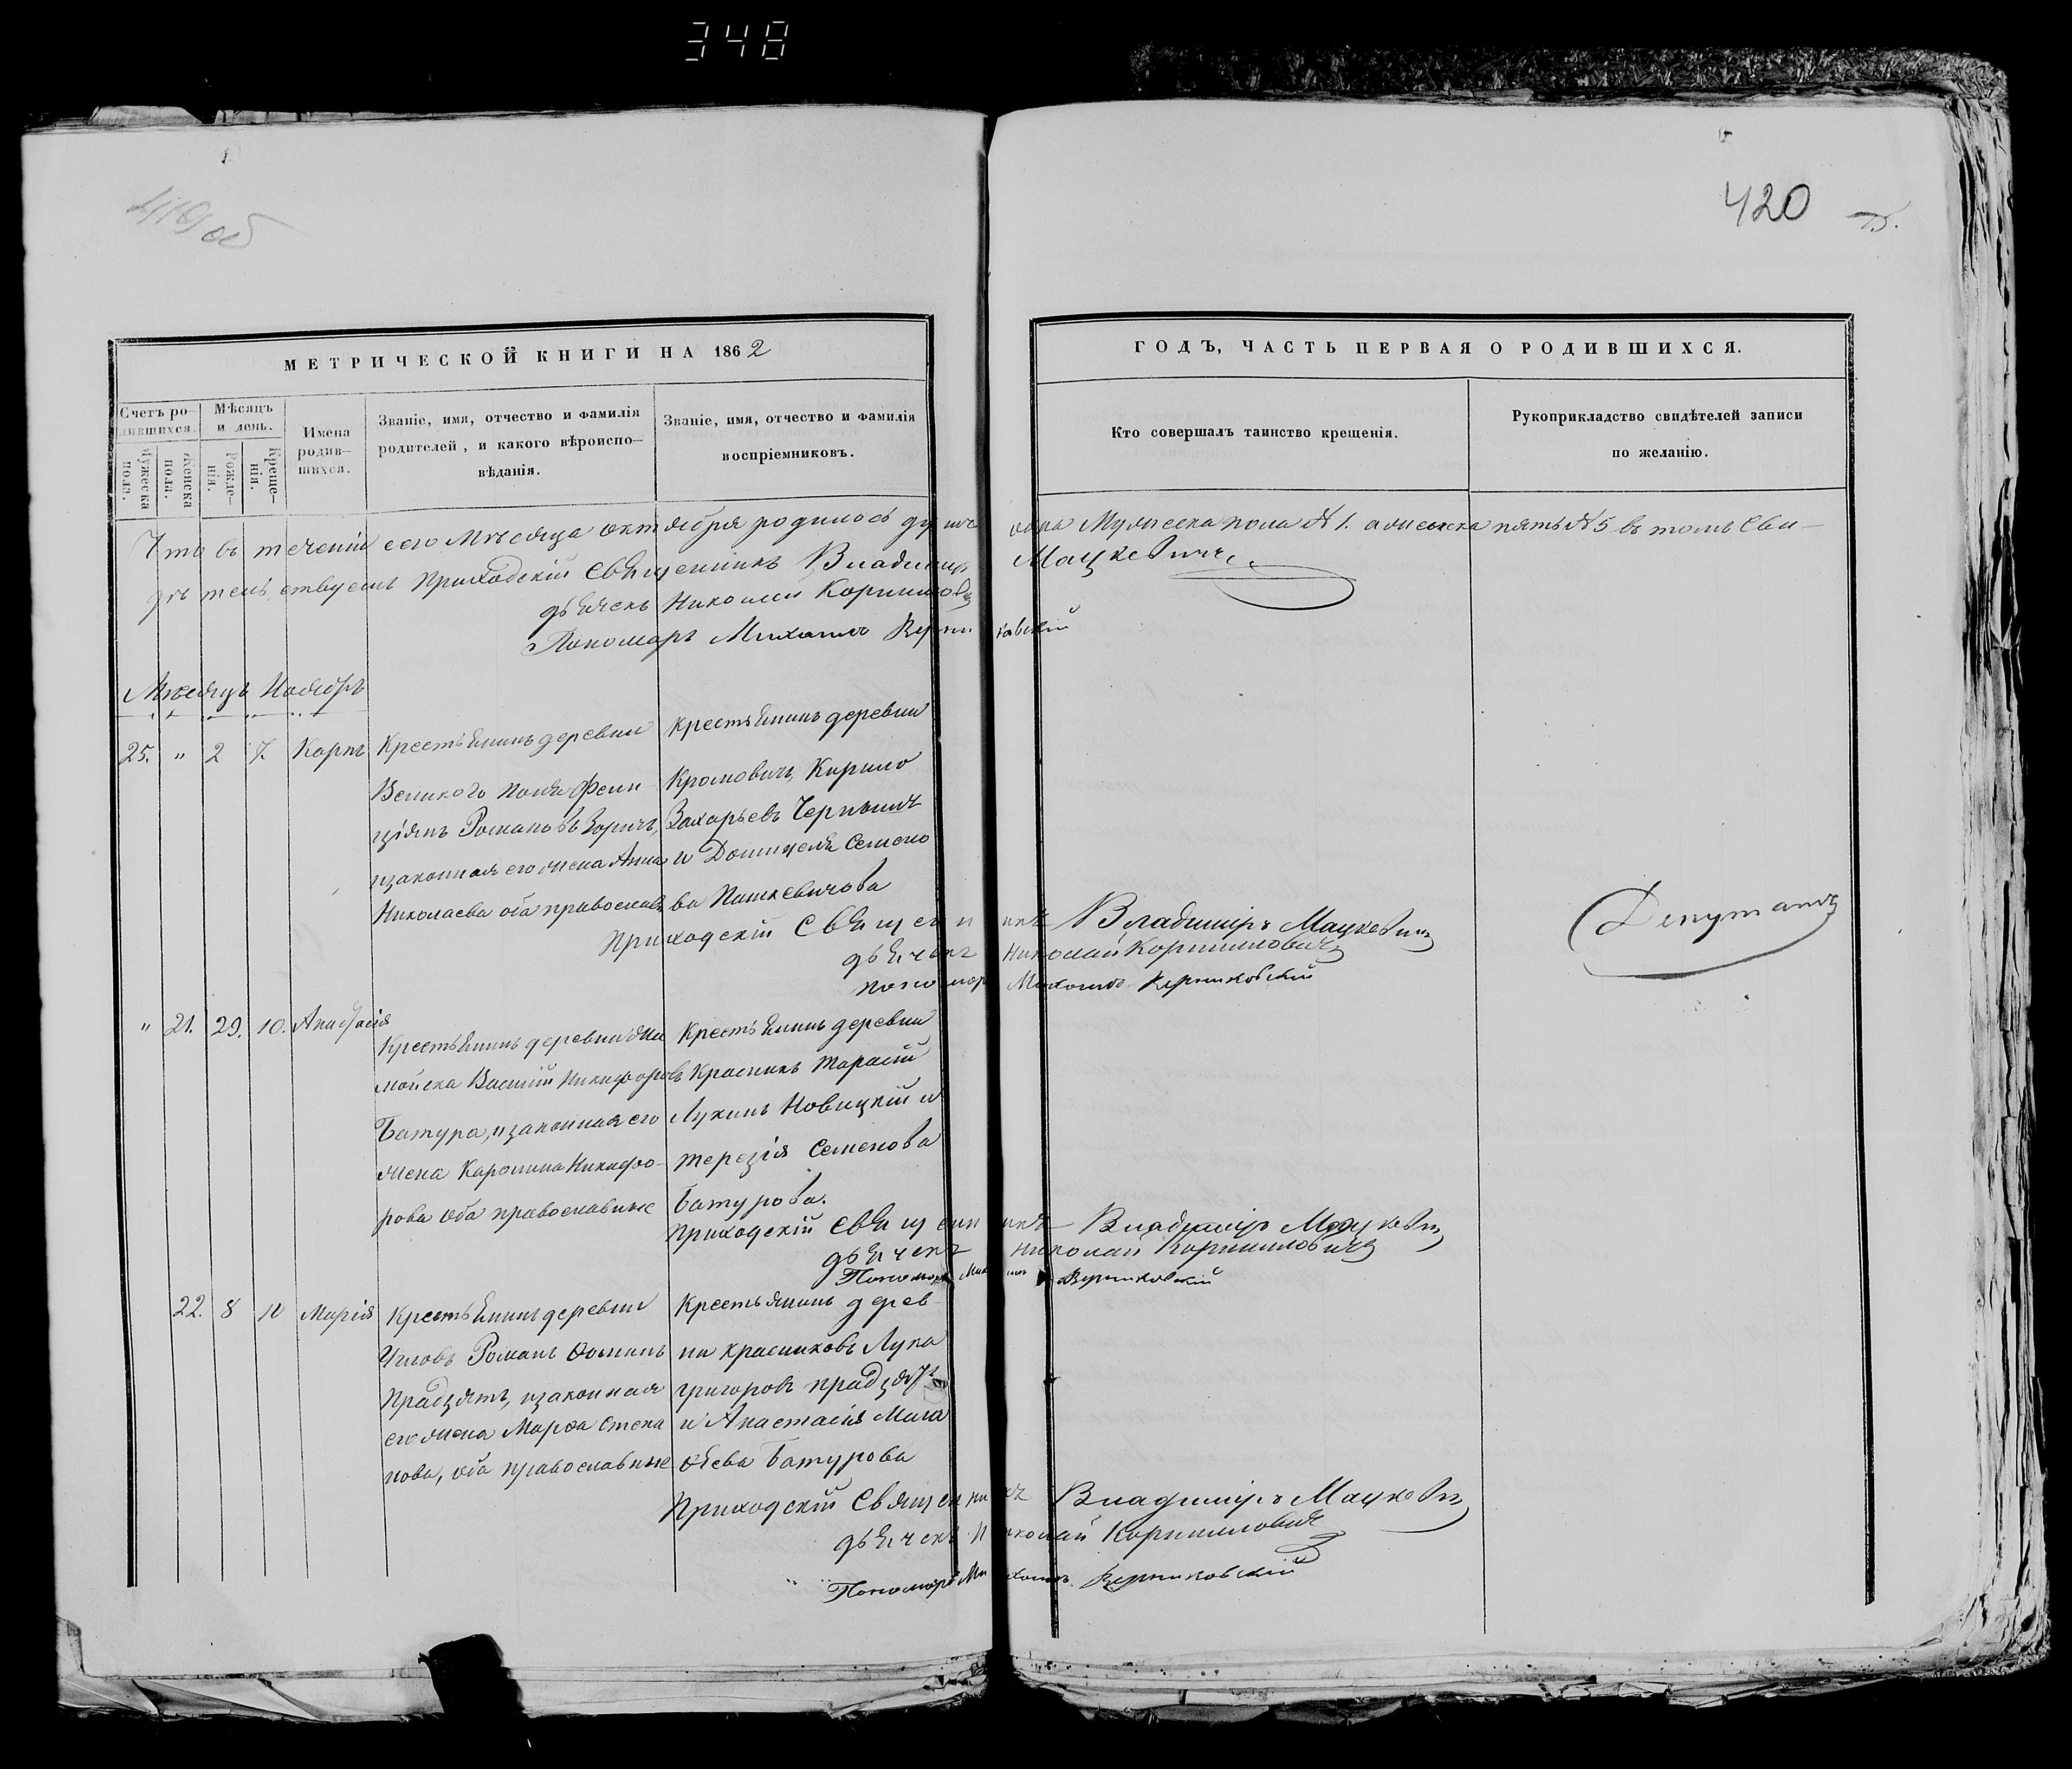 348
419 об
420
МЕТРИЧЕСКОЙ КНИГИ НА 1862
ГОДЪ, ЧАСТЬ ПЕРВАЯ О РОДИВШИХСЯ.
Счетъ ро-
дившихся.
Мужеска
пола.
Женска
пола.
Мѣсяцъ
и день.
Рожде-
нія.
Креще-
нія.
Имена
родив-
шихся.
Званіе, имя, отчество и фамилія
родителей, и какого вѣроиспо-
вѣданія.
Званіе, имя, отчество и фамилія
воспріемниковъ.
Кто совершалъ таинство крещенія.
Рукоприкладство свидѣтелей записи
по желанію.
Что въ теченіи сего Мѣсяца октября родилось душъ одна Мужеска пола № 1. а женска пять № 5 въ томъ Сви-
дѣтельствуемъ Приходскій Священникъ Владиміръ Мацкевичъ
дьячекъ Николай
Пономарь Михаилъ
Мѣсяцъ Ноябрь
25. " 2 7. Карпъ
Крестьянинъ деревни
Великого поля Фели-
ціянъ Романовъ Зоричъ,
изаконная его жена Анна
Николаева оба православ
Крестьянинъ деревни
Кромовичъ, Кирило
Захарьевъ
и Домицеля Семено
ва Пашкевичова
Приходскій Священникъ Владиміръ Мацкевичъ
дьячекъ Николай
пономарь Михаилъ
Депутатъ
" 21. 29. 10. Анастасія
Крестьянинъ деревни
Василій Никифоровъ
Батура, изаконная его
жена Каролина Никифо-
рова оба православные
Крестьянинъ деревни
Красникъ Тарасій
Лукинъ Новицкій и
Терезія Семенова
Батурова.
Приходскій Священникъ Владиміръ Мацкевичъ
дьячекъ Николай
Пономарь Михаилъ
22. 8 10 Марія
Крестьянинъ деревни
Романъ
изаконная
его жена Марфа Степа
нова, оба православные
Крестьянинъ дерев-
ни красниковъ Лука
григоровъ
и Анастасія
Батурова
Приходскій Священникъ Владиміръ Мацкевичъ
дьячекъ Николай
Пономарь Михаилъ